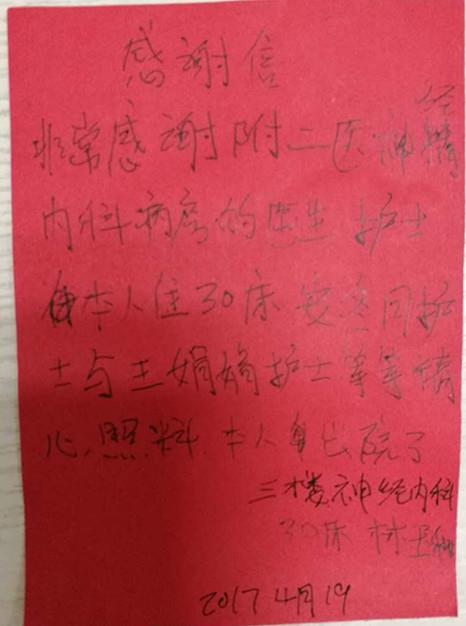 感谢信
非常感谢附二医神经
内科病房的医生护士
本人住30床安
护
士与王娟娟护士等等精
心照料.本人出院了
三楼神经内科
30床林
2017 4月19